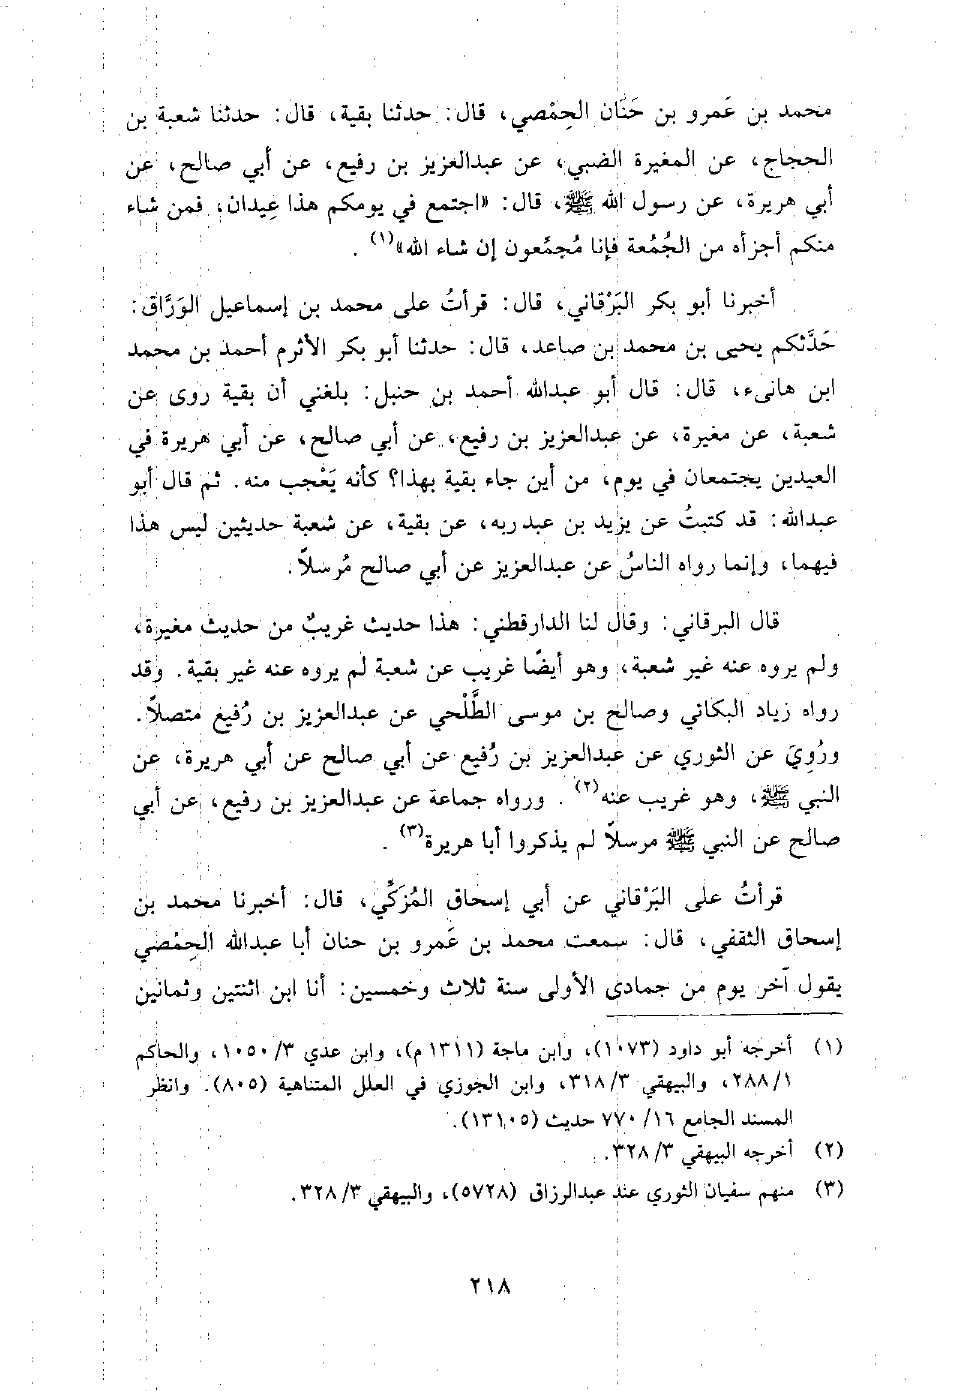 محمد بن عَمرو بن حَنَان الحِمْصي، قال: حدثنا بقية، قال: حدثنا شعبة بن
الحجاج، عن المغيرة الضبي، عن عبدالعزيز بن رفيع، عن أبي صالح، عن
أبي هريرة، عن رسول الله ﷺ، قال: «اجتمع في يومكم هذا عِيدان، فمن شاء
منكم أجزأه من الجُمُعة فإنا مُجمِّعون إن شاء الله»(١) .
أخبرنا أبو بكر البَرْقاني، قال: قرأتُ على محمد بن إسماعيل الوَرَّاق:
حَدَّثكم يحيى بن محمد بن صاعد، قال: حدثنا أبو بكر الأثرم أحمد بن محمد
ابن هانىء، قال: قال أبو عبدالله أحمد بن حنبل: بلغني أن بقية روى عن
شعبة، عن مغيرة، عن عبدالعزيز بن رفيع، عن أبي صالح، عن أبي هريرة في
العيدين يجتمعان في يوم، من أين جاء بقية بهذا؟ كأنه يَعْجب منه. ثم قال أبو
عبدالله: قد كتبتُ عن يزيد بن عبد ربه، عن بقية، عن شعبة حديثين ليس هذا
فيهما، وإنما رواه الناسُ عن عبدالعزيز عن أبي صالح مُرسلاً.
قال البرقاني: وقال لنا الدارقطني: هذا حديث غريبٌ من حديث مغيرة،
ولم يروه عنه غير شعبة، وهو أيضًا غريب عن شعبة لم يروه عنه غير بقية. وقد
رواه زياد البكائي وصالح بن موسى الطَّلْحي عن عبدالعزيز بن رُفيع متصلاً.
ورُوِيَ عن الثوري عن عبدالعزيز بن رُفيع عن أبي صالح عن أبي هريرة، عن
النبي ﷺ، وهو غريب عنه(٢) . ورواه جماعة عن عبدالعزيز بن رفيع، عن أبي
صالح عن النبي ﷺ مرسلاً لم يذكروا أبا هريرة(٣) .
قرأتُ على البَرْقاني عن أبي إسحاق المُزَكِّي، قال: أخبرنا محمد بن
إسحاق الثقفي، قال: سمعت محمد بن عَمرو بن حنان أبا عبدالله الحِمْصي
يقول آخر يوم من جمادى الأولى سنة ثلاث وخمسين: أنا ابن اثنتين وثمانين
(١) أخرجه أبو داود (١٠٧٣)، وابن ماجة (١٣١١ م)، وابن عدي ٣/ ١٠٥٠، والحاكم
١/ ٢٨٨، والبيهقي ٣/ ٣١٨، وابن الجوزي في العلل المتناهية (٨٠٥). وانظر
المسند الجامع ١٦/ ٧٧٠ حديث (١٣١٠٥).
(٢) أخرجه البيهقي ٣/ ٣٢٨.
(٣) منهم سفيان الثوري عند عبدالرزاق (٥٧٢٨)، والبيهقي ٣/ ٣٢٨.
٢١٨